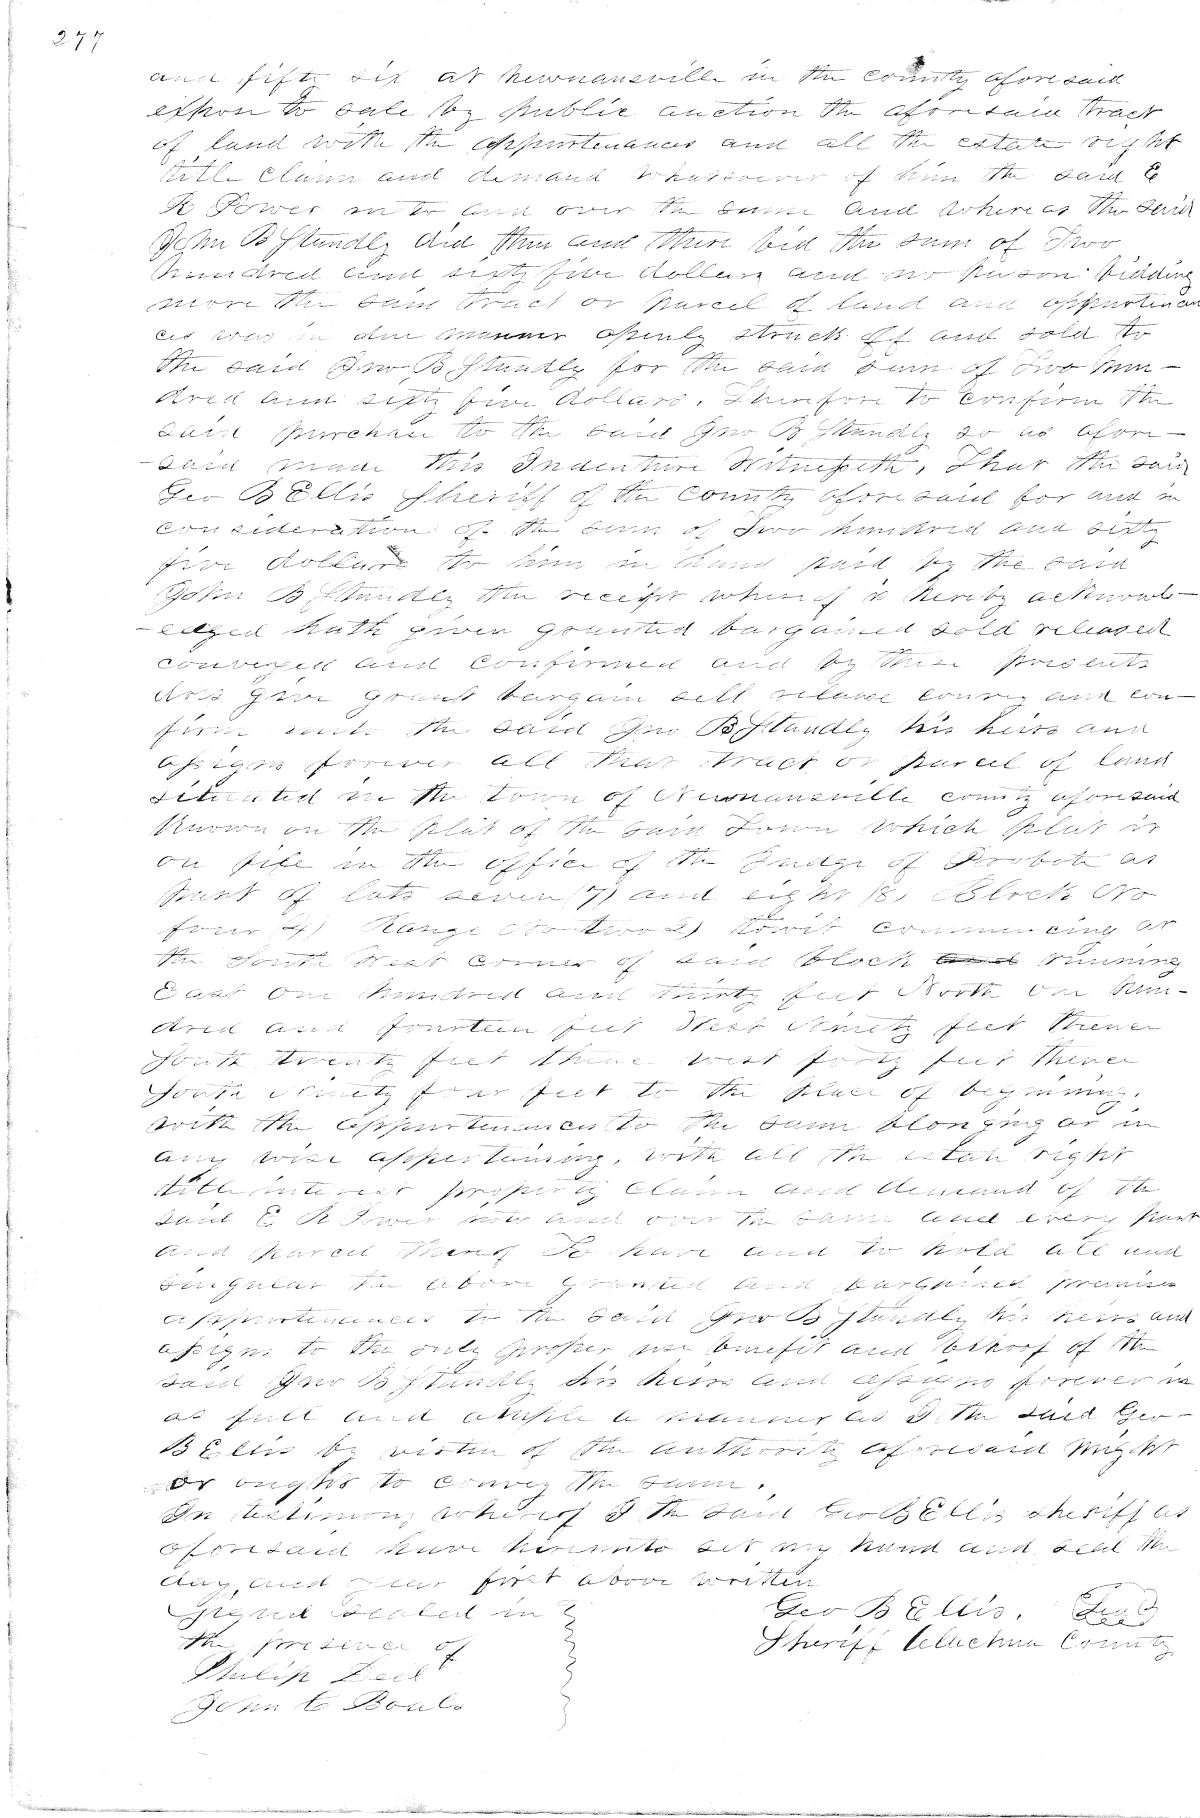 277
and fifty six at Newnansville in the county aforesaid
expose to sale by public auction the aforesaid tract
of land with the appurtenances and all the estate right
title claim and demand whatsoever of him the said E
R Power in to and over the same and whereas the said
John B Standly did then and there bid the sum of Two
hundred and sixty five dollars and no person bidding
more the said tract or parcel of land and appurtenan
ces was in due manner openly struck off and sold to
the said Jno B Standly for the said sum of Two hun-
dred and sixty five dollars. Therefore to confirm the
said purchase to the said Jno B Standly so as afore-
-said made this Indenture Witnesseth, That the said
Geo B Ellis Sheriff of the County aforesaid for and in
consideration of the sum of Two hundred and sixty
five dollars to him in hand paid by the said
John B Standly the receipt whereof is hereby acknowl-
-edged hath given granted bargained sold released
conveyed and confirmed and by these presents
does give grant bargain sell release convey and con-
firm unto the said Jno B Standly his heirs and
assigns forever all that tract or parcel of land
situated in the town of Newnansville county aforesaid
Known on the plat of the said Town which plat is
on file in the office of the Judge of Probate as
part of lots seven (7) and eight (8) Block No
four (4) Range No two 2) towit commencing at
the South West corner of said block and running
East One hundred and thirty feet North One hun-
dred and fourteen feet West Ninety feet thence
South twenty feet thence west forty feet thence
South Ninety four feet to the place of beginning.
with the appurtenances to the same blonging or in
any wise appertaining, with all the estate right
title interest property claim and demand of the
said E R Power into and over the same and every part
and parcel thereof To have and to hold all and
singular the above granted and bargained premises
appurtenances to the said Jno B Standly his heirs and
assigns to the only proper use benefit and behoof of the
said Jno B Standly his heirs and assigns forever in
as full and ample a manner as I the said Geo-
B Ellis by virtue of the authority aforesaid might
or ought to convey the same.
In testimony whereof I the said Geo B Ellis sheriff as
aforesaid have hereunto set my hand and seal the
day and year first above written
Signed Sealed in
Geo B Ellis. Seal
the presence of
Sheriff Alachua County
Philip Dell
John C